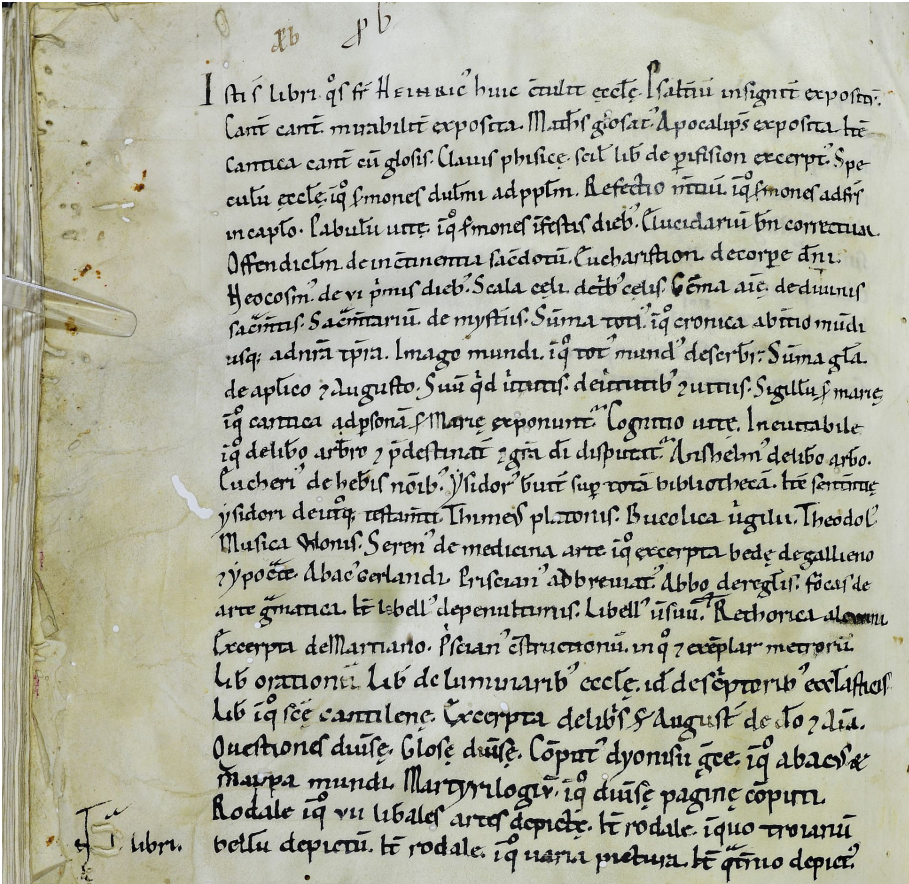 Isti s̄ libri q̊s fr̄ Heinric᾽ huic ɔ̄tulit eccl̄ę. Psalteriū insignit̄ expositū.
Cant̄ cant̄. mirabilit̄ exposita. Math̄s glosat᾽. Apocalips̄ exposita. Itē
cantica cant̄ cū glosis. Clavis phisicę. scil̄ lib̄ de p̱ifision excerpt᾽. Spe
culū eccl̄ę. ī q̊ s̄mones dulīmi ad pp̄lm. Refectio m̄tiū. ī q̊ s̄mones ad fr̄s
in cap̄lo. Pabulū vitę. ī q̊ s̄mones ī festis dieb᾽. Elucidariū bn̄ correctum.
Offendicl̄m. de incōtinentia sac̄dotū. Eucharistion. de corp̱e dn̄i.
Neocosm᾽. de vi p̄mis dieb᾽. Scala cęli. de gͣdib᾽ cęlis. Gēma aīę. de divinis
sacm̄tis. Sacm̄tariū. de mystiis. Sūma toti᾽. ī q̊ cronica ab initio mūdi
usq; ad nr̄a tp̄ra. Imago mundi. ī q̊ tot᾽ mund᾽ describit᾽. Sūma gl̄a.
de ap̄lico ⁊ Augusto. Suū q̊d virtutis. de virtutib᾽ ⁊ vitiis. Sigillū s̄ marię
ī q̊ cantica ad p̱sonā s̄ Marię exponunt᾽. Cognitio vitę. Inevitabile
ī q̊ de lib̄o arbͥo ⁊ p̄destinat̄ ⁊ gr̄a dī disputat᾽. Anshelm᾽ de lib̄o arbͦo.
Eucheri᾽ de heb̄is nōib᾽. Ysidor᾽ brevit̄ sup̱ totā bibliothecā. Itē sententię
ysidori de utͦq; testam̄ti. Thimeˢ platonis. Bucolica v̄gilii. Theodol᾽
Musica Wonis. Seren᾽ de medicina arte. ī q̊ excerpta bedę de gallieno
⁊ ypocͣte. Abac᾽ Gerlandi. Priscian᾽ abbreviat᾽. Abbo de regl̄is. focas de
arte gͣmatica. It̄ libell᾽ de penultimis. Libell᾽ v̄suū. Rethorica
Excerpta de Martiano. P̄scian᾽ ɔ̄structionū. in q̊ ⁊ exēplar metrorū.
Lib̄ orationū. Lib̄ de luminarib᾽ eccl̄ę. id̄ de scͥptorib᾽ eccl̄asticis
Lib̄ ī q̊ scę̄ cantilenę. Excerpta de lib᾽s s̄ August̄ de do ⁊ aīa.
Questiones div̄sę. Glosę div̄sę. Cōput᾽ dyonisii gͣece. ī q̊ abacˢ &
mappa mundi. Martyrilogiū. ī q̊ div̄sę paginę cōputi.
Rodale ī q̊ vii lib̄ales artes depictę. It̄ rodale. ī quo troianū
bellū depictū. It̄ rodale. ī q̊ varia pictura. It̄ qͣrtūo depict᾽.
libri.